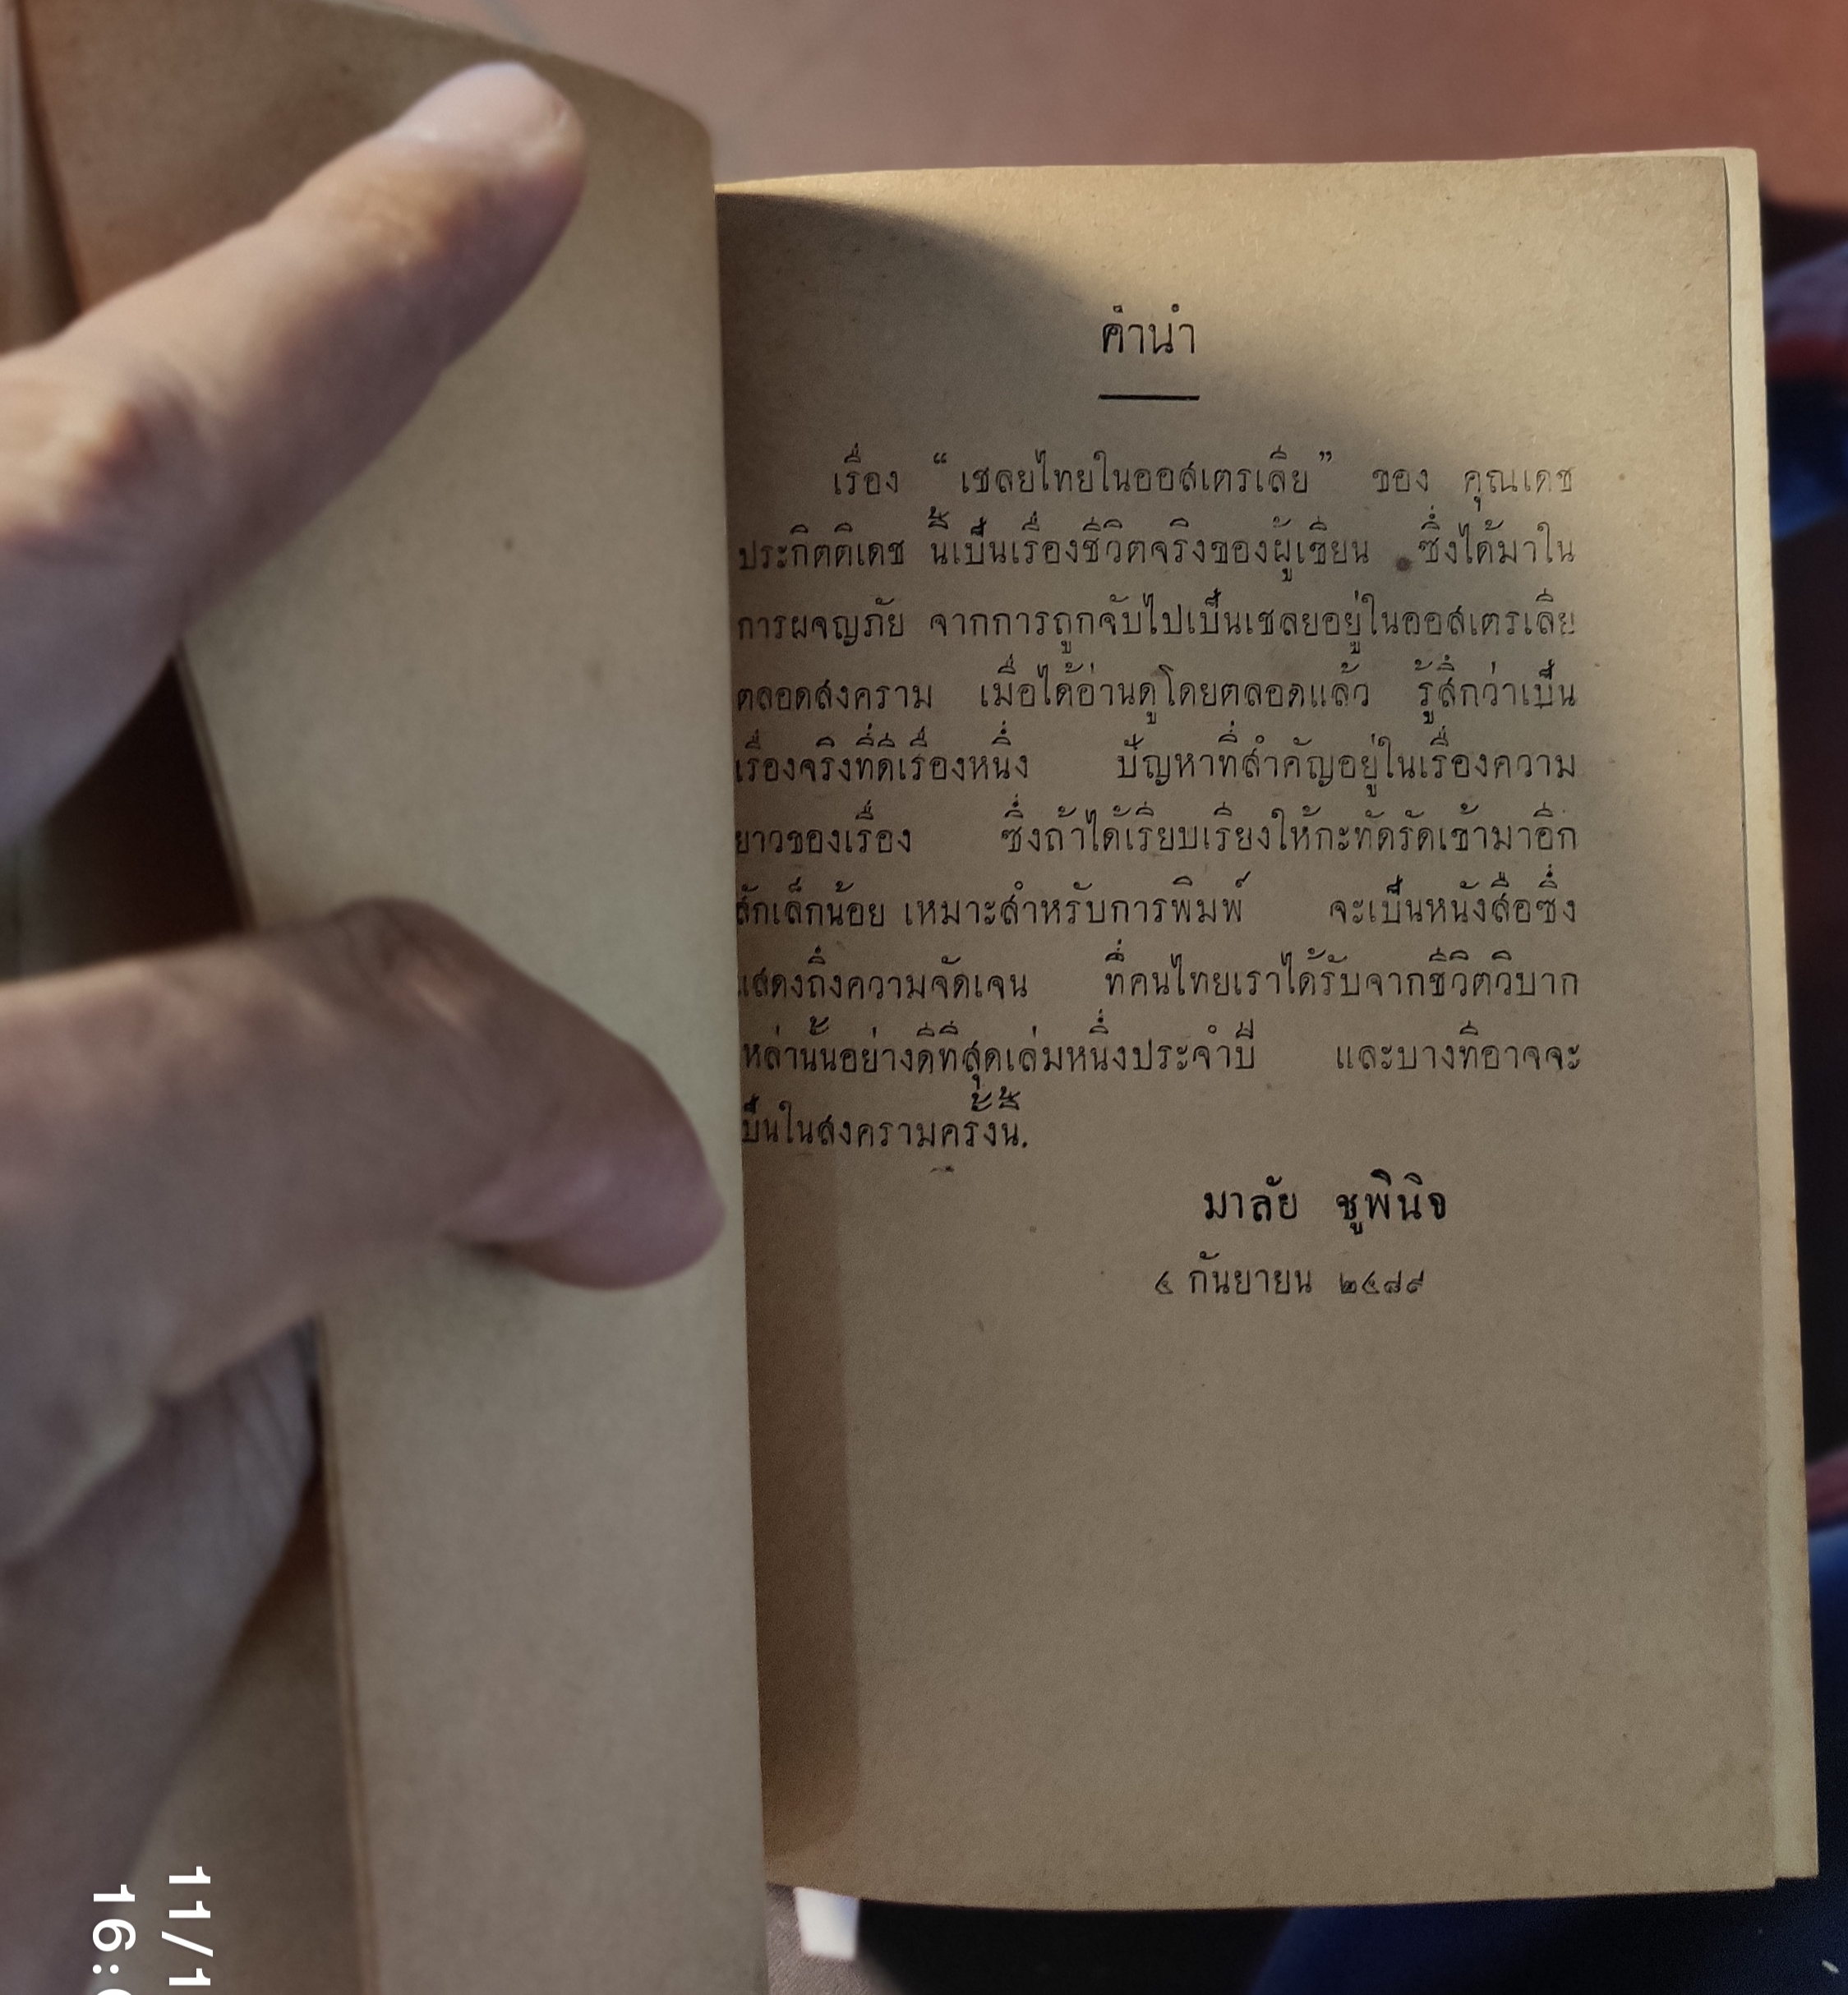 คำนำ
เรื่อง “เชลยไทยในออสเตรเลีย” ของ คุณเดช
ประกิตติเดช นี้เป็นเรื่องชีวิตจริงของผู้เขียน ซึ่งได้มาใน
การผจญภัย จากการถูกจับไปเป็นเชลยอยู่ในออสเตรเลีย
ตลอดสงคราม เมื่อได้อ่านดูโดยตลอดแล้ว รู้สึกว่าเป็น
เรื่องจริงที่ดีเรื่องหนึ่ง ปัญหาที่สำคัญอยู่ในเรื่องความ
ยาวของเรื่อง ซึ่งถ้าได้เรียบเรียงให้กะทัดรัดเข้ามาอีก
สักเล็กน้อย เหมาะสำหรับการพิมพ์ จะเป็นหนังสือซึ่ง
แสดงถึงความจัดเจน ที่คนไทยเราได้รับจากชีวิตวิบาก
เหล่านั้นอย่างดีที่สุดเล่มหนึ่งประจำปี และบางทีอาจจะ
เป็นในสงครามครั้งนี้.
มาลัย ชูพินิจ
๔ กันยายน ๒๔๘๙
11/1
16: